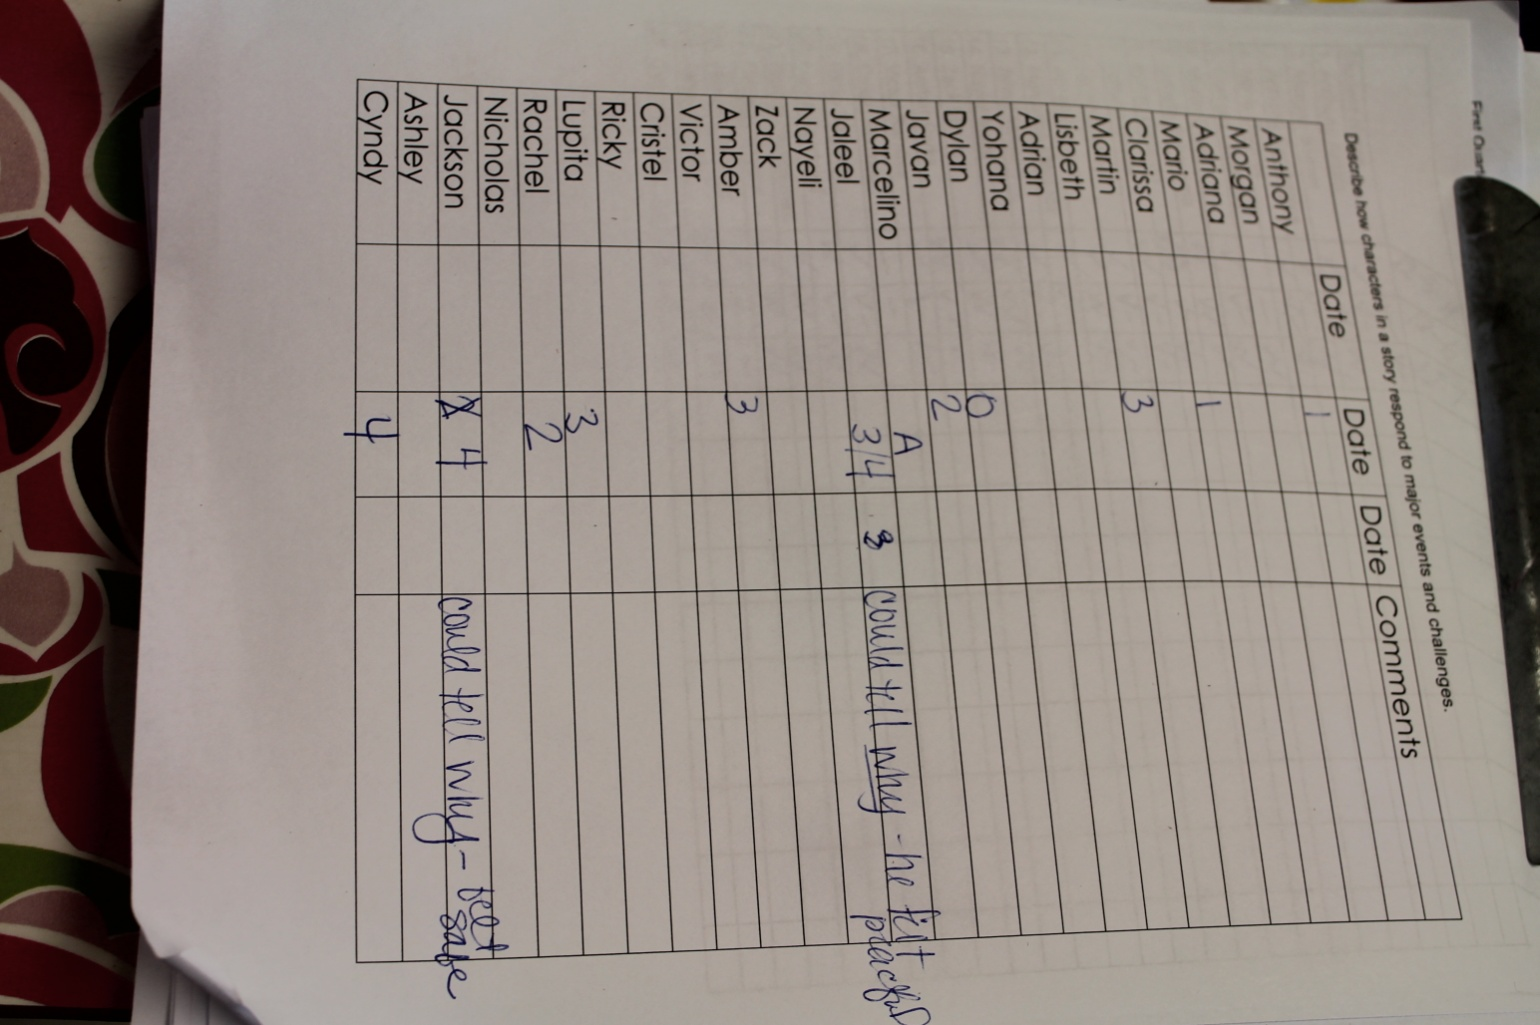 First Quart
Describe how characters in a story respond to major events and challenges.
Date Date Date Comments
Anthony 1
Morgan
Adriana
Mario 1
Clarissa
Martin 3
Lisbeth
Adrian
Yohana
Dylan 0
Javan 2
Marcelino A
Jaleel 3/4 3 could tell why - he felt
peacful
Nayeli
Zack
Amber 3
Victor
Cristel
Ricky
Lupita 3
Rachel 2
Nicholas
Jackson 4 could tell why - felt
safe
Ashley
Cyndy 4